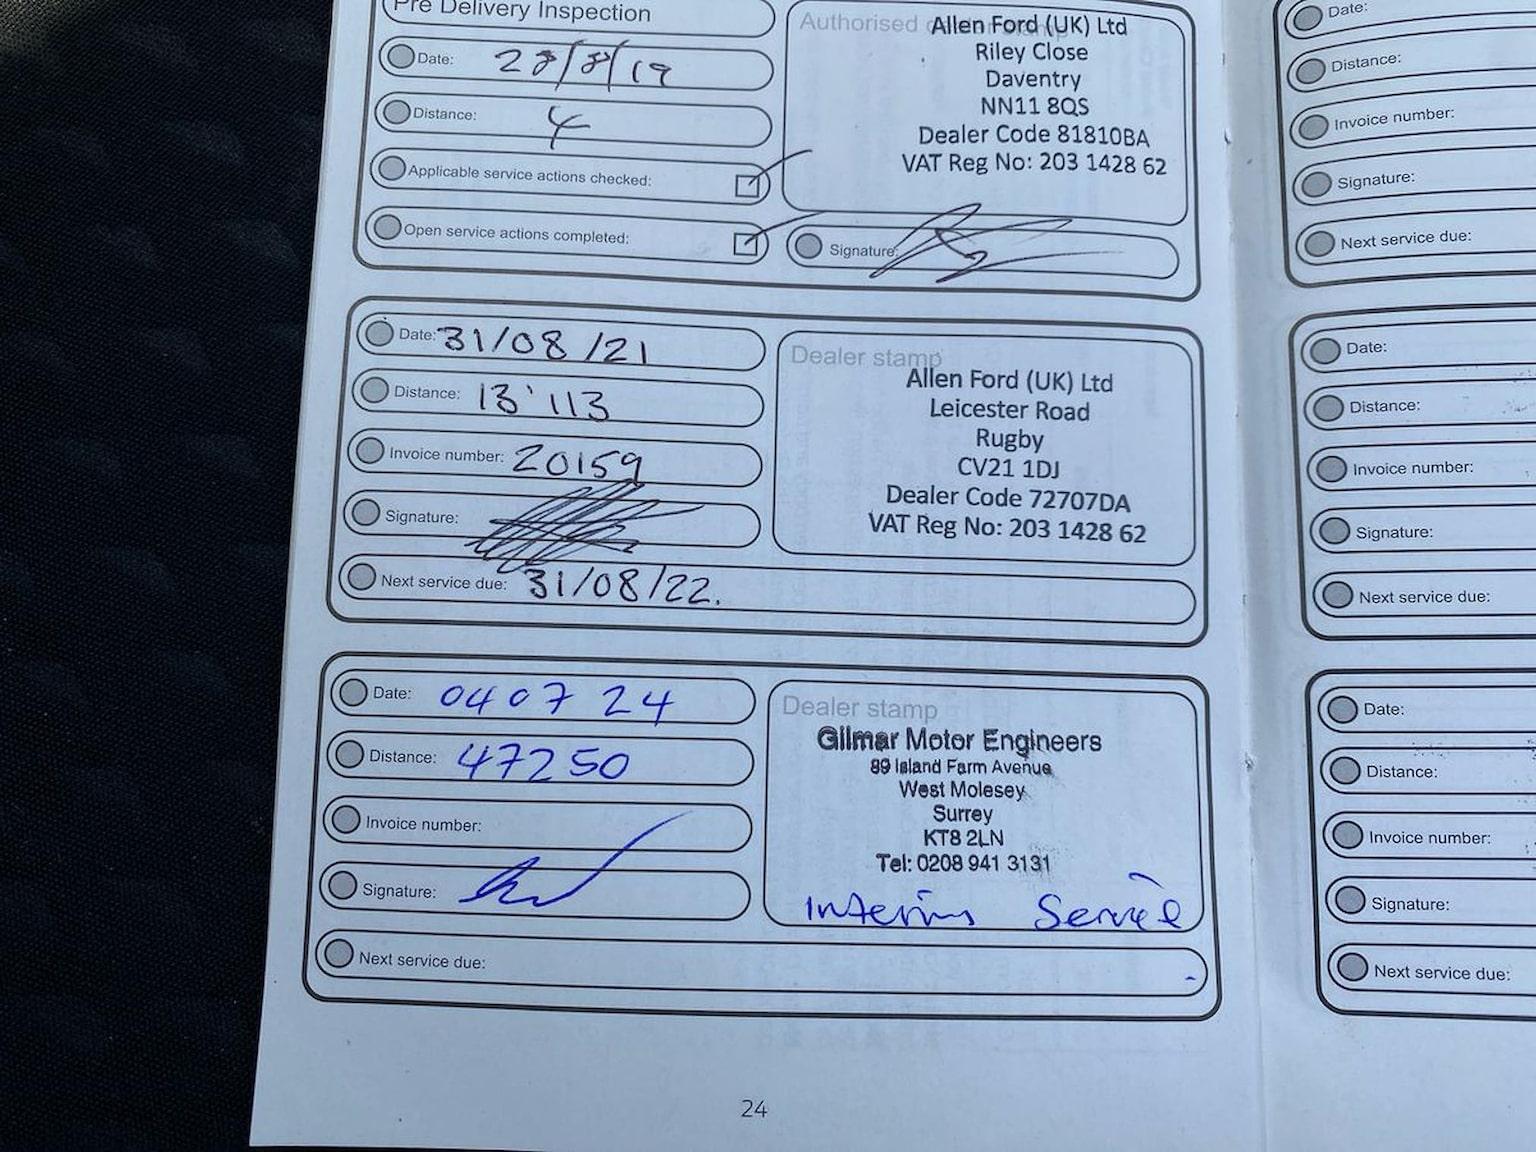 Pre Delivery Inspection
Date: 28/8/19
Distance: 4
Applicable service actions checked:
Open service actions completed:
Authorised
Allen Ford (UK) Ltd
Riley Close
Daventry
NN11 8QS
Dealer Code 81810BA
VAT Reg No: 203 1428 62
Signature:
Date: 31/08/21
Distance: 13'113
Invoice number: 20159
Signature:
Next service due: 31/08/22.
Dealer stamp
Allen Ford (UK) Ltd
Leicester Road
Rugby
CV21 1DJ
Dealer Code 72707DA
VAT Reg No: 203 1428 62
Date: 04 07 24
Distance: 47250
Invoice number:
Signature:
Next service due:
Dealer stamp
Gilmar Motor Engineers
89 Island Farm Avenue
West Molesey
Surrey
KT8 2LN
Tel: 0208 941 3131
Interim Service
24
Date:
Distance:
Invoice number:
Signature:
Next service due:
Date:
Distance:
Invoice number:
Signature:
Next service due:
Date:
Distance:
Invoice number:
Signature:
Next service due: